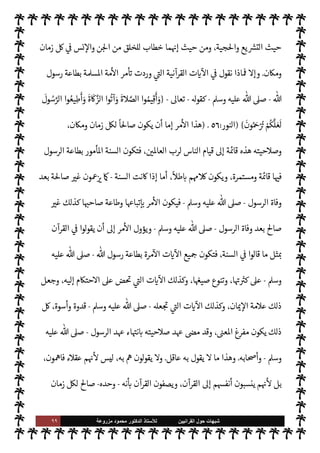 حيث التشريع والحجية، ومن حيث إنهما خطاب للخلق من الجن والإنس في كل زمان
ومكان. وإلا فماذا نقول في الآيات القرآنية التي وردت تأمر الأمة المسلمة بطاعة رسول
الله - صلى الله عليه وسلم - كقوله - تعالى - {وَأَقِيمُوا الصَّلَاةَ وَآتُوا الزَّكَاةَ وَأَطِيعُوا الرَّسُولَ
لَعَلَّكُمْ تُرْحَمُونَ} (النور:٥٦) . (هذا الأمر إما أن يكون صالحاً لكل زمان ومكان،
وصلاحيته هذه قائمة إلى قيام الناس لرب العالمين، فتكون السنة المأمور بطاعة الرسول
فيها قائمة ومستمرة، ويكون كلامهم باطلاً، أما إذا كانت السنة - كما يزعمون غير صالحة بعد
وفاة الرسول - صلى الله عليه وسلم - فيكون الأمر بإتباعها وطاعة صاحبها كذلك غير
صالح بعد وفاة الرسول - صلى الله عليه وسلم - ويؤول الأمر إلى أن يقولوا في القرآن
بمثل ما قالوا في السنة، فتكون جميع الآيات الآمرة بطاعة رسول الله - صلى الله عليه
وسلم - على كثرتها، وتنوع صيغها، وكذلك الآيات التي تحض على الاحتكام إليه، وجعل
ذلك علامة الإيمان، وكذلك الآيات التي تجعله - صلى الله عليه وسلم - قدوة وأسوة، كل
ذلك يكون مفرغ المعنى، وقد مضى عهد صلاحيته بانتهاء عهد الرسول - صلى الله عليه
وسلم - وأصحابه، وهذا ما لا يقول به عاقل. ولا يقولون هم به، ليس لأنهم عقلاء فاهمون،
بل لأنهم ينسبون أنفسهم إلى القرآن، ويصفون القرآن بأنه - وحده - صالح لكل زمان
شبهات حول القرآنيين للأستاذ الدكتور محمود مزروعة ٩٩